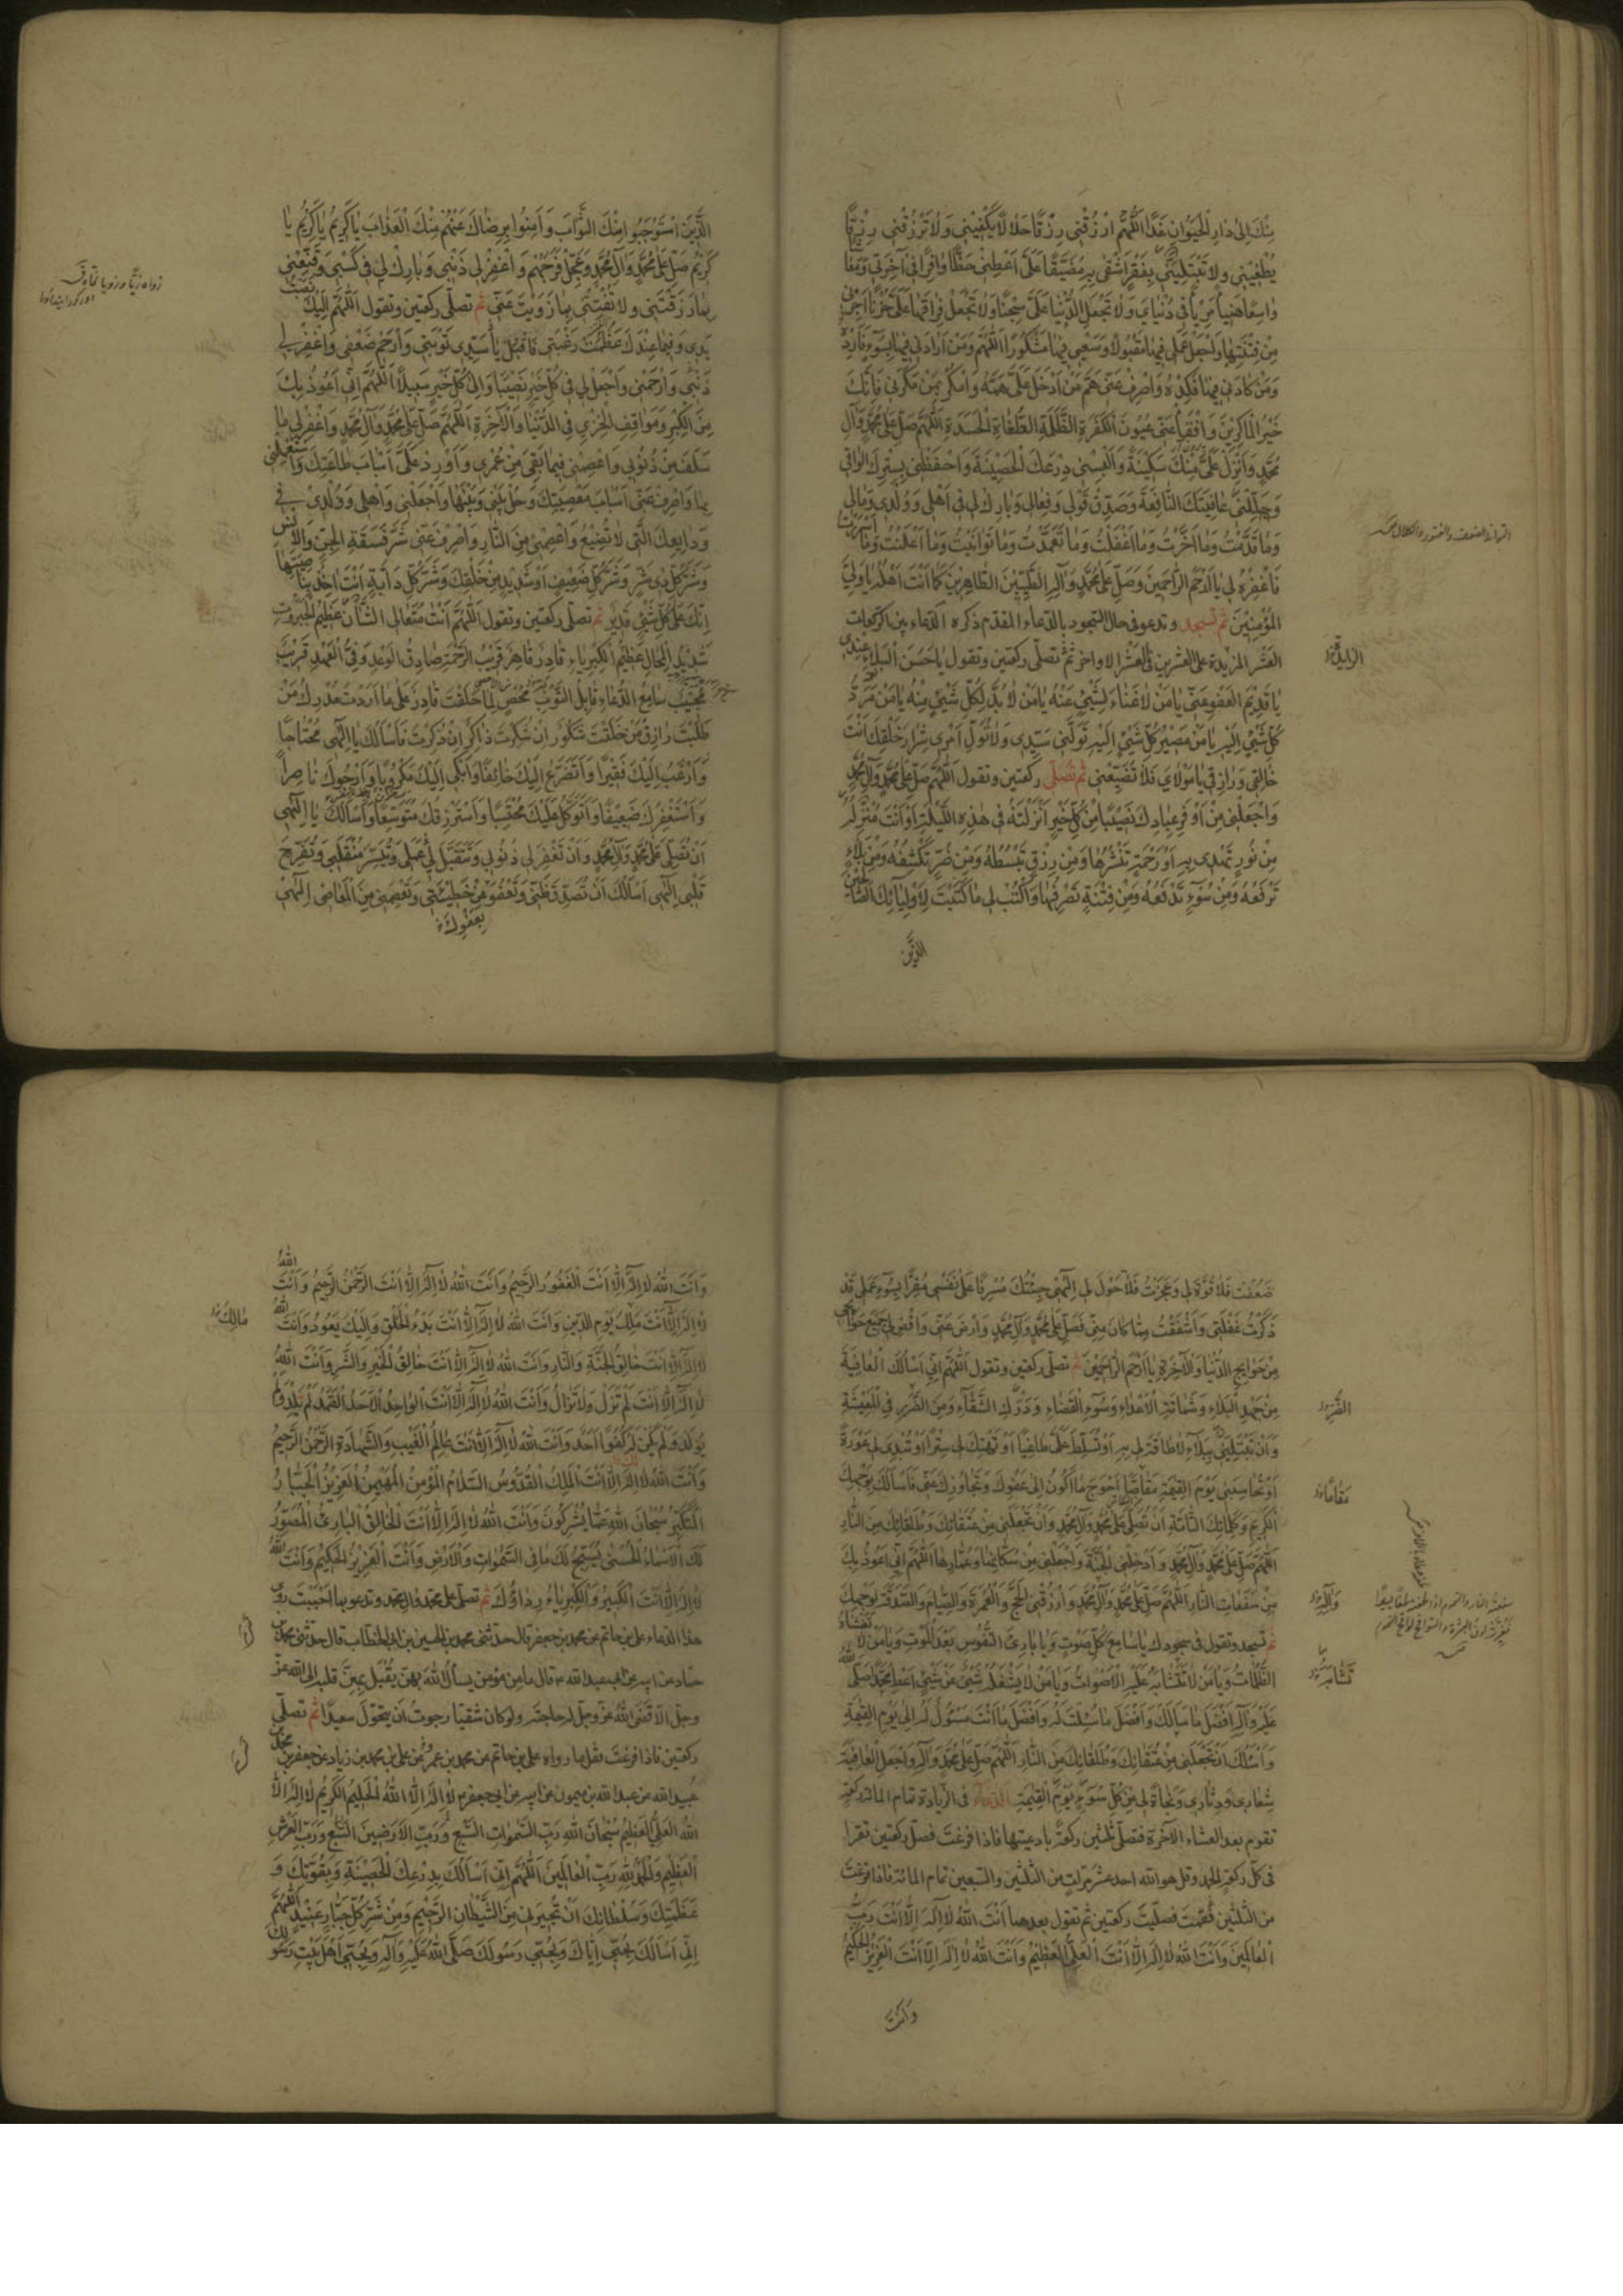 مِنْكَ اِلىٰ دارِ الْحَيَوانِ غَداً اَللّٰهُمَّ ارْزُقْنى رِزْقاً حَلالاً يَكْفينى وَلا تَرْزُقْنى رِزْقاً
يُطْغينى وَلا تَبْتَلِيَنّى بِفَقْرٍ اَشْقىٰ بِهِ مُضَيَّقاً عَلَىَّ اَعْطِنى حَظّاً وافِراً فى آخِرَتى وَمَعاشاً
واسِعاً هَنيئاً مَريئاً فى دُنْياىَ وَلا تَجْعَلِ الدُّنْيا عَلَىَّ سِجْناً وَلا تَجْعَلْ فِراقَها عَلَىَّ حُزْناً اَجِرْنى
مِنْ فِتْنَتِها وَاجْعَلْ عَمَلى فيها مَقْبُولاً وَسَعْيى فيها مَشْكُوراً اَللّٰهُمَّ وَمَنْ اَرادَنى فيها بِسُوءٍ فَاَرِدْهُ
وَمَنْ كادَنى فيها فَكِدْهُ وَاصْرِفْ عَنّى هَمَّ مَنْ اَدْخَلَ عَلَىَّ هَمَّهُ وَامْكُرْ بِمَنْ مَكَرَ بى فَاِنَّكَ
خَيْرُ الْماكِرينَ وَافْقَأْ عَنّى عُيُونَ الْكَفَرَةِ الظَّلَمَةِ الطُّغاةِ الْحَسَدَةِ اَللّٰهُمَّ صَلِّ عَلىٰ مُحَمَّدٍ وَآلِ
مُحَمَّدٍ وَاَنْزِلْ عَلَىَّ مِنْكَ سَكينَةً وَاَلْبِسْنى دِرْعَكَ الْحَصينَةَ وَاحْفَظْنى بِسِتْرِكَ الْواقى
وَجَلِّلْنى عافِيَتَكَ النّافِعَةَ وَصَدِّقْ قَوْلى وَفِعالى وَبارِكْ لى فى اَهْلى وَوُلْدى وَمالى
وَما قَدَّمْتُ وَما اَخَّرْتُ وَما اَغْفَلْتُ وَما تَعَمَّدْتُ وَما تَوانَيْتُ وَما اَعْلَنْتُ وَما اَسْرَرْتُ
فَاغْفِرْهُ لى يا اَرْحَمَ الرّاحِمينَ وَصَلِّ عَلىٰ مُحَمَّدٍ وَآلِهِ الطَّيِّبينَ الطّاهِرينَ كَما اَنْتَ اَهْلُهُ يا وَلِىَّ
الْمُؤْمِنينَ ثم تسجد وتدعو فى حال السّجود بالدّعاء المقدّم ذكره الدّعاء بين الركعات
العَشْر المزيدة على العشرين فى العشر الاواخر ثمّ تصلّى ركعتين وتقول يا حَسَنَ الْبَلاءِ عِنْدى
يا قَديمَ الْعَفْوِ عَنّى يا مَنْ لا غِناءَ لِشَىْءٍ عَنْهُ يا مَنْ لا بُدَّ لِكُلِّ شَىْءٍ مِنْهُ يا مَنْ مَرَدُّ
كُلِّ شَىْءٍ اِلَيْهِ يا مَنْ مَصيرُ كُلِّ شَىْءٍ اِلَيْهِ تَوَلَّنى سَيِّدى وَلا تُوَلِّ اَمْرى شِرارَ خَلْقِكَ اَنْتَ
خالِقى وَرازِقى يا مَوْلاىَ فَلا تُضَيِّعْنى ثم تصلّى ركعتين وتقول اَللّٰهُمَّ صَلِّ عَلىٰ مُحَمَّدٍ وَآلِ مُحَمَّدٍ
وَاجْعَلْنى مِنْ اَوْفَرِ عِبادِكَ نَصيباً مِنْ كُلِّ خَيْرٍ اَنْزَلْتَهُ فى هٰذِهِ اللَّيْلَةِ اَوْ اَنْتَ مُنْزِلُهُ
مِنْ نُورٍ تَهْدى بِهِ اَوْ رَحْمَةٍ تَنْشُرُها وَمِنْ رِزْقٍ تَبْسُطُهُ وَمِنْ ضُرٍّ تَكْشِفُهُ وَمِنْ بَلاءٍ
تَرْفَعُهُ وَمِنْ سُوءٍ تَدْفَعُهُ وَمِنْ فِتْنَةٍ تَصْرِفُها وَاكْتُبْ لى ما كَتَبْتَ لِاَوْلِيائِكَ الصّالِحينَ
الَّذينَ
الَّذينَ اسْتَوْجَبُوا مِنْكَ الثَّوابَ وَآمَنُوا بِرِضاكَ عَنْهُمْ مِنْكَ الْعَذابَ يا كَريمُ يا كَريمُ يا
كَريمُ صَلِّ عَلىٰ مُحَمَّدٍ وَآلِ مُحَمَّدٍ وَعَجِّلْ فَرَجَهُمْ وَاغْفِرْ لى ذَنْبى وَبارِكْ لى فى كَسْبى وَقَنِّعْنى
بِما رَزَقْتَنى وَلا تَفْتِنّى بِما زَوَيْتَ عَنّى ثم تصلّى ركعتين وتقول اَللّٰهُمَّ اِلَيْكَ نَصَبْتُ
يَدى وَفيما عِنْدَكَ عَظُمَتْ رَغْبَتى فَاقْبَلْ يا سَيِّدى تَوْبَتى وَارْحَمْ ضَعْفى وَاغْفِرْ لى
ذَنْبى وَارْحَمْنى وَاجْعَلْ لى فى كُلِّ خَيْرٍ نَصيباً وَاِلىٰ كُلِّ خَيْرٍ سَبيلاً اَللّٰهُمَّ اِنّى اَعُوذُ بِكَ
مِنَ الْكِبْرِ وَمَواقِفِ الْخِزْىِ فِى الدُّنْيا وَالْآخِرَةِ اَللّٰهُمَّ صَلِّ عَلىٰ مُحَمَّدٍ وَآلِ مُحَمَّدٍ وَاغْفِرْ لى ما
سَلَفَ مِنْ ذُنُوبى وَاعْصِمْنى فيما بَقِىَ مِنْ عُمْرى وَاَوْرِدْ عَلَىَّ اَسْبابَ طاعَتِكَ وَاسْتَعْمِلْنى
بِها وَاصْرِفْ عَنّى اَسْبابَ مَعْصِيَتِكَ وَحُلْ بَيْنى وَبَيْنَها وَاجْعَلْنى وَاَهْلى وَوُلْدى فى
وَدايِعِكَ الَّتى لا تَضيعُ وَاعْصِمْنى مِنَ النّارِ وَاصْرِفْ عَنّى شَرَّ فَسَقَةِ الْجِنِّ وَالْاِنْسِ
وَشَرَّ كُلِّ ذى شَرٍّ وَشَرَّ كُلِّ ضَعيفٍ اَوْ شَديدٍ مِنْ خَلْقِكَ وَشَرَّ كُلِّ دابَّةٍ اَنْتَ آخِذٌ بِناصِيَتِها
اِنَّكَ عَلىٰ كُلِّ شَىْءٍ قَديرٌ ثم تصلّى ركعتين وتقول اَللّٰهُمَّ اَنْتَ مُتَعالِى الشَّأْنِ عَظيمُ الْجَبَرُوتِ
شَديدُ الْمِحالِ عَظيمُ الْكِبْرِياءِ قادِرٌ قاهِرٌ قَريبُ الرَّحْمَةِ صادِقُ الْوَعْدِ وَفِىُّ الْعَهْدِ قَريبٌ
مُجيبٌ سامِعُ الدُّعاءِ قابِلُ التَّوْبَةِ مُحْصٍ لِما خَلَقْتَ قادِرٌ عَلىٰ ما اَرَدْتَ مُدْرِكُ مَنْ
طَلَبْتَ رازِقُ مَنْ خَلَقْتَ شَكُورٌ اِنْ شُكِرْتَ ذاكِرٌ اِنْ ذُكِرْتَ فَاَسْأَلُكَ يا اِلٰهى مُحْتاجاً
وَاَرْغَبُ اِلَيْكَ فَقيراً وَاَتَضَرَّعُ اِلَيْكَ خائِفاً وَاَبْكى اِلَيْكَ مَكْرُوباً وَاَرْجُوكَ ناصِراً
وَاَسْتَغْفِرُكَ ضَعيفاً وَاَتَوَكَّلُ عَلَيْكَ مُحْتَسِباً وَاَسْتَرْزِقُكَ مُتَوَسِّعاً وَاَسْأَلُكَ يا اِلٰهى
اَنْ تُصَلِّىَ عَلىٰ مُحَمَّدٍ وَآلِ مُحَمَّدٍ وَاَنْ تَغْفِرَ لى ذُنُوبى وَتَتَقَبَّلَ لى عَمَلى وَتُيَسِّرَ مُنْقَلَبى وَتُفَرِّجَ
قَلْبى اِلٰهى اَسْأَلُكَ اَنْ تُصَدِّقَ ظَنّى وَتَعْفُوَ عَنْ خَطيئَتى وَتَعْصِمَنى مِنَ الْمَعاصى اِلٰهى
ضَعُفْتُ فَلا قُوَّةَ لى وَعَجَزْتُ فَلا حَوْلَ لى اِلٰهى جِئْتُكَ مُسْرِفاً عَلىٰ نَفْسى مُقِرّاً بِسُوءِ عَمَلى قَدْ
ذَكَرْتُ غَفْلَتى وَاَشْفَقْتُ مِمّا كانَ مِنّى فَصَلِّ عَلىٰ مُحَمَّدٍ وَآلِ مُحَمَّدٍ وَارْضَ عَنّى وَاقْضِ لى جَميعَ حَوائِجى
مِنْ حَوائِجِ الدُّنْيا وَالْآخِرَةِ يا اَرْحَمَ الرّاحِمينَ ثم تصلّى ركعتين وتقول اَللّٰهُمَّ اِنّى اَسْأَلُكَ الْعافِيَةَ
مِنْ جَهْدِ الْبَلاءِ وَشَماتَةِ الْاَعْداءِ وَسُوءِ الْقَضاءِ وَدَرَكِ الشَّقاءِ وَمِنَ الضَّرَرِ فِى الْمَعيشَةِ
وَاَنْ تَبْتَلِيَنى بِبَلاءٍ لا طاقَةَ لى بِهِ اَوْ تُسَلِّطَ عَلَىَّ طاغِياً اَوْ تَهْتِكَ لى سِتْراً اَوْ تُبْدِىَ لى عَوْرَةً
اَوْ تُحاسِبَنى يَوْمَ الْقِيٰمَةِ مُقاصّاً اَحْوَجَ ما اَكُونُ اِلىٰ عَفْوِكَ وَتَجاوُزِكَ عَنّى فَاَسْأَلُكَ بِوَجْهِكَ
الْكَريمِ وَكَلِماتِكَ التّامَّةِ اَنْ تُصَلِّىَ عَلىٰ مُحَمَّدٍ وَآلِ مُحَمَّدٍ وَاَنْ تَجْعَلَنى مِنْ عُتَقائِكَ وَطُلَقائِكَ مِنَ النّارِ
اَللّٰهُمَّ صَلِّ عَلىٰ مُحَمَّدٍ وَآلِ مُحَمَّدٍ وَاَدْخِلْنِى الْجَنَّةَ وَاجْعَلْنى مِنْ سُكّانِها وَعُمّارِها اَللّٰهُمَّ اِنّى اَعُوذُ بِكَ
مِنْ سَفَعاتِ النّارِ اَللّٰهُمَّ صَلِّ عَلىٰ مُحَمَّدٍ وَآلِ مُحَمَّدٍ وَارْزُقْنِى الْحَجَّ وَالْعُمْرَةَ وَالصِّيامَ وَالصَّدَقَةَ لِوَجْهِكَ
ثم تسجد وتقول فى سجودك يا سامِعَ كُلِّ صَوْتٍ وَيا بارِئَ النُّفُوسِ بَعْدَ الْمَوْتِ وَيا مَنْ لا تَغْشاهُ
الظُّلُماتُ وَيا مَنْ لا تَتَشابَهُ عَلَيْهِ الْاَصْواتُ وَيا مَنْ لا يَشْغَلُهُ شَىْءٌ عَنْ شَىْءٍ اَعْطِ مُحَمَّداً صَلَّى اللهُ
عَلَيْهِ وَآلِهِ اَفْضَلَ ما سَأَلَكَ وَاَفْضَلَ ما سُئِلْتَ لَهُ وَاَفْضَلَ ما اَنْتَ مَسْئُولٌ لَهُ اِلىٰ يَوْمِ الْقِيٰمَةِ
وَاَسْأَلُكَ اَنْ تَجْعَلَنى مِنْ عُتَقائِكَ وَطُلَقائِكَ مِنَ النّارِ اَللّٰهُمَّ صَلِّ عَلىٰ مُحَمَّدٍ وَآلِهِ وَاجْعَلِ الْعافِيَةَ
شِعارى وَدِثارى وَنَجاةً لى مِنْ كُلِّ سُوءٍ يَوْمَ الْقِيٰمَةِ الدعاء فى الزّيادة تمام المائة ركعة
تقوم بعد العشاء الآخرة فتصلّى ثلثين ركعة بادعيتها فاذا فرغت فصلّ ركعتين تقرا
فى كلّ ركعة الحمد وقل هو الله احد عشر مرات من الثلثين والسبعين تمام المائة فاذا فرغت
من الثلثين فقمت فصلّيت ركعتين ثم تقول بعدهما اَنْتَ اللهُ لا اِلٰهَ اِلّا اَنْتَ رَبُّ
الْعالَمينَ وَاَنْتَ اللهُ لا اِلٰهَ اِلّا اَنْتَ الْعَلِىُّ الْعَظيمُ وَاَنْتَ اللهُ لا اِلٰهَ اِلّا اَنْتَ الْعَزيزُ الْحَكيمُ
وَاَنْتَ
وَاَنْتَ اللهُ لا اِلٰهَ اِلّا اَنْتَ الْغَفُورُ الرَّحيمُ وَاَنْتَ اللهُ لا اِلٰهَ اِلّا اَنْتَ الرَّحْمٰنُ الرَّحيمُ وَاَنْتَ اللهُ
لا اِلٰهَ اِلّا اَنْتَ مَلِكُ يَوْمِ الدّينِ وَاَنْتَ اللهُ لا اِلٰهَ اِلّا اَنْتَ بَدْءُ الْخَلْقِ وَاِلَيْكَ يَعُودُ وَاَنْتَ اللهُ
لا اِلٰهَ اِلّا اَنْتَ خالِقُ الْجَنَّةِ وَالنّارِ وَاَنْتَ اللهُ لا اِلٰهَ اِلّا اَنْتَ خالِقُ الْخَيْرِ وَالشَّرِّ وَاَنْتَ اللهُ
لا اِلٰهَ اِلّا اَنْتَ لَمْ تَزَلْ وَلا تَزالُ وَاَنْتَ اللهُ لا اِلٰهَ اِلّا اَنْتَ الْواحِدُ الْاَحَدُ الصَّمَدُ لَمْ يَلِدْ وَلَمْ
يُولَدْ وَلَمْ يَكُنْ لَهُ كُفُواً اَحَدٌ وَاَنْتَ اللهُ لا اِلٰهَ اِلّا اَنْتَ عالِمُ الْغَيْبِ وَالشَّهادَةِ الرَّحْمٰنُ الرَّحيمُ
وَاَنْتَ اللهُ لا اِلٰهَ اِلّا اَنْتَ الْمَلِكُ الْقُدُّوسُ السَّلامُ الْمُؤْمِنُ الْمُهَيْمِنُ الْعَزيزُ الْجَبّارُ
الْمُتَكَبِّرُ سُبْحانَ اللهِ عَمّا يُشْرِكُونَ وَاَنْتَ اللهُ لا اِلٰهَ اِلّا اَنْتَ الْخالِقُ الْبارِئُ الْمُصَوِّرُ
لَكَ الْاَسْماءُ الْحُسْنىٰ يُسَبِّحُ لَكَ ما فِى السَّمٰواتِ وَالْاَرْضِ وَاَنْتَ الْعَزيزُ الْحَكيمُ وَاَنْتَ اللهُ
لا اِلٰهَ اِلّا اَنْتَ الْكَبيرُ وَالْكِبْرِياءُ رِداؤُكَ ثم تصلّى على محمّد وال محمد وتدعو بما احببت روى
هذا الدعاء على بن حاتم عن محمد بن جعفر قال حدّثنى محمد بن الحسين بن ابى الخطاب قال حدّثنى محمد بن
حماد عن ابيه عن ابى عبد الله قال ما من مؤمن يسأل الله بهن يقبل بهنّ قلبه الى الله عزّ
وجلّ الّا قضى الله عزّ وجلّ له حاجته ولو كان شقيا رجوت أن يتحوّل سعيداً ثم تصلّى
ركعتين فاذا فرغت فقل ما رواه على بن حاتم عن محمد بن عمرو عن على بن محمد بن زياد عن جعفر بن محمد بن
عبيد الله عن عبد الله بن ميمون عن ابيه عن ابى جعفر لا اِلٰهَ اِلَّا اللهُ الْحَليمُ الْكَريمُ لا اِلٰهَ اِلَّا
اللهُ الْعَلِىُّ الْعَظيمُ سُبْحانَ اللهِ رَبِّ السَّمٰواتِ السَّبْعِ وَرَبِّ الْاَرَضينَ السَّبْعِ وَرَبِّ الْعَرْشِ
الْعَظيمِ وَالْحَمْدُ لِلّٰهِ رَبِّ الْعالَمينَ اَللّٰهُمَّ اِنّى اَسْأَلُكَ بِدِرْعِكَ الْحَصينَةِ وَبِقُوَّتِكَ وَ
عَظَمَتِكَ وَسُلْطانِكَ اَنْ تُجيرَنى مِنَ الشَّيْطانِ الرَّجيمِ وَمِنْ شَرِّ كُلِّ جَبّارٍ عَنيدٍ اَللّٰهُمَّ
اِنّى اَسْأَلُكَ بِحُبّى اِيّاكَ وَبِحُبّى رَسُولَكَ صَلَّى اللهُ عَلَيْهِ وَآلِهِ وَبِحُبّى اَهْلَ بَيْتِ رَسُولِكَ